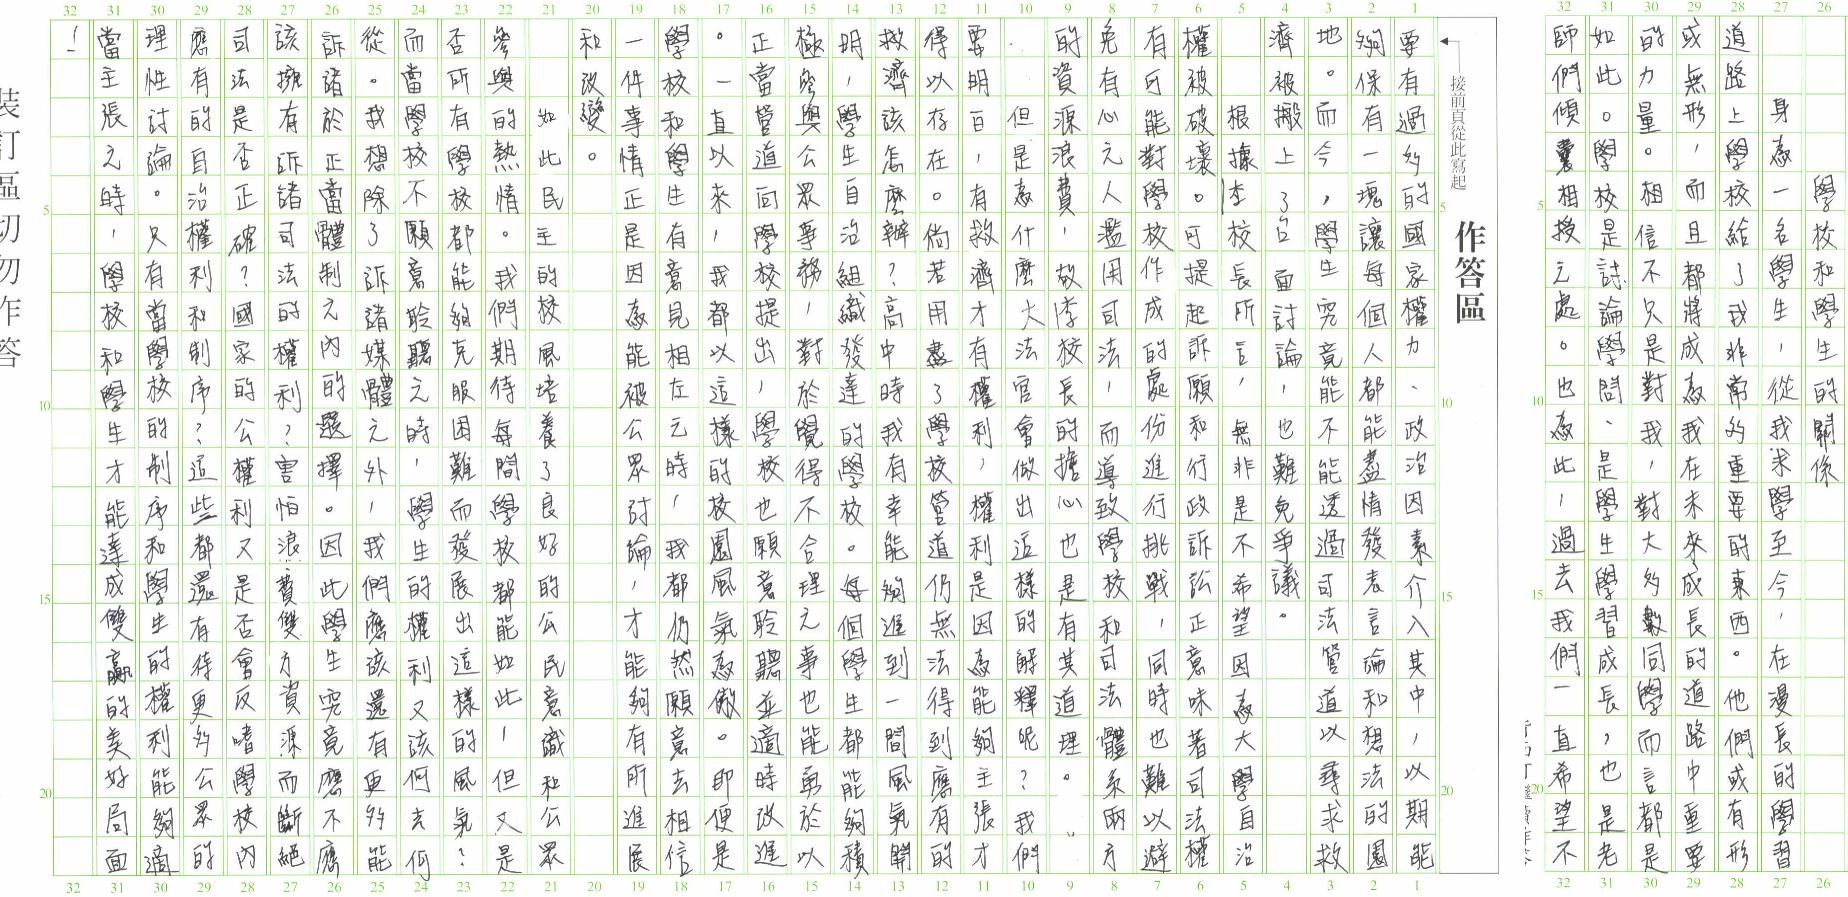 學校和學生的關係
身為一名學生，從我求學至今，在漫長的學習
道路上學校給了我非常多重要的東西。他們或有形
或無形，而且都將成為我在未來成長的道路中重要
的力量。相信不只是對我，對大多數同學而言都是
如此。學校是討論學問、是學生學習成長，也是老
師們傾囊相授之處。也為此，過去我們一直希望不
接前頁從此寫起
作答區
要有過多的國家權力、政治因素介入其中，以期能
夠保有一塊讓每個人都能盡情發表言論和想法的園
地。而今，學生究竟能不能透過司法管道以尋求救
濟被搬上了台面討論，也難免爭議。
根據李校長所言，無非是不希望因為大學自治
權被破壞。可提起訴願和行政訴訟正意味著司法權
有可能對學校作成的處份進行挑戰，同時也難以避
免有心之人濫用司法，而導致學校和司法體系兩方
的資源浪費，故李校長的擔心也是有其道理。
但是為什麼大法官會做出這樣的解釋呢？我們
要明白，有救濟才有權利，權利是因為能夠主張才
得以存在。倘若用盡了學校管道仍無法得到應有的
救濟該怎麼辦？高中時我有幸能夠進到一間風氣開
明，學生自治組織發達的學校。每個學生都能夠積
極參與公眾事務，對於覺得不合理之事也能勇於以
正當管道向學校提出，學校也願意聆聽並適時改進
。一直以來，我都以這樣的校園風氣為傲。即便是
學校和學生有意見相左之時，我都仍然願意去相信
一件事情正是因為能被公眾討論，才能夠有所進展
和改變。
如此民主的校風培養了良好的公民意識和公眾
參與的熱情。我們期待每間學校都能如此，但又是
否所有學校都能夠克服困難而發展出這樣的風氣？
而當學校不願意聆聽之時，學生的權利又該何去何
從。我想除了訴諸媒體之外，我們應該還有更多能
訴諸於正當體制之內的選擇。因此學生究竟應不應
該擁有訴諸司法的權利？害怕浪費雙方資源而斷絕
司法是否正確？國家的公權利又是否會反噬學校內
應有的自治權利和制序？這些都還有待更多公眾的
理性討論。只有當學校的制序和學生的權利能夠適
當主張之時，學校和學生才能達成雙贏的美好局面
！
裝訂區切勿作答